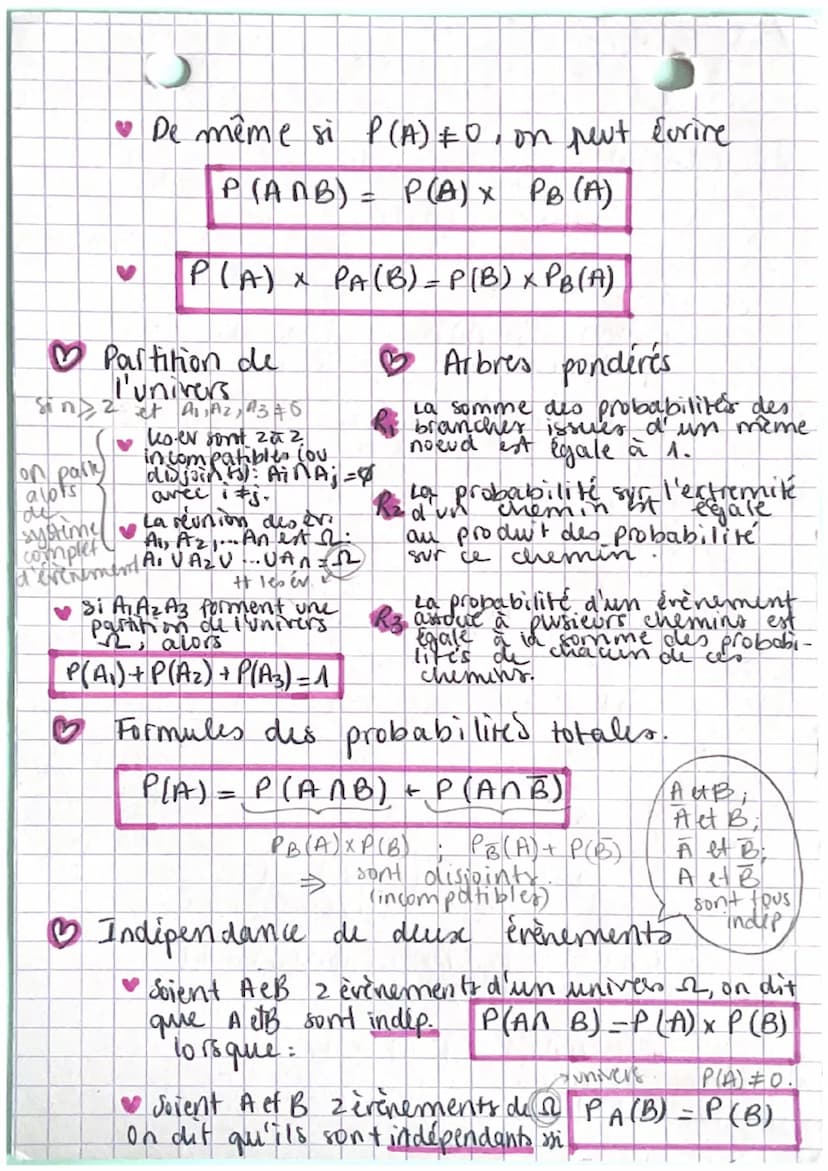 De même si P(A) ≠ 0, on peut écrire
P(A∩B) = P(B) × PB(A)
P(A) × PA(B) = P(B) × PB(A)
Partition de
l'univers
si n ≥ 2 et A1, A2, A3 ≠ 0
on parle
alors
de
système
complet
d'évènement
les ev sont 2 à 2
incompatibles (ou
disjoints): Ai∩Aj = ∅
avec i ≠ j.
La réunion des ev.
A1, A2, ... An est Ω:
A1 ∪ A2 ∪ ... ∪ An = Ω
tt les ev.
si A1 A2 A3 forment une
partition de l'univers
Ω, alors
P(A1) + P(A2) + P(A3) = 1
Arbres pondérés
R1 La somme des probabilités des
branches issues d'un même
noeud est égale à 1.
R2 La probabilité sur l'extremité
d'un chemin est égale
au produit des probabilité
sur ce chemin.
R3 La probabilité d'un évènement
associé à plusieurs chemins est
égale à la somme des probabi-
lités de chacun de ces
chemins.
Formules des probabilités totales.
P(A) = P(A∩B) + P(A∩B̅)
PB(A) × P(B) ; PB̅(A) + P(B̅)
⇒ sont disjoints
(incompatibles)
A et B;
A̅ et B;
A̅ et B̅;
A et B̅
sont tous
indep
Indépendance de deux évènements
Soient A et B 2 évènements d'un univers Ω, on dit
que A et B sont indép. P(A∩B) = P(A) × P(B)
lorsque:
univers P(A) ≠ 0.
Soient A et B 2 évènements de Ω PA(B) = P(B)
On dit qu'ils sont indépendants si